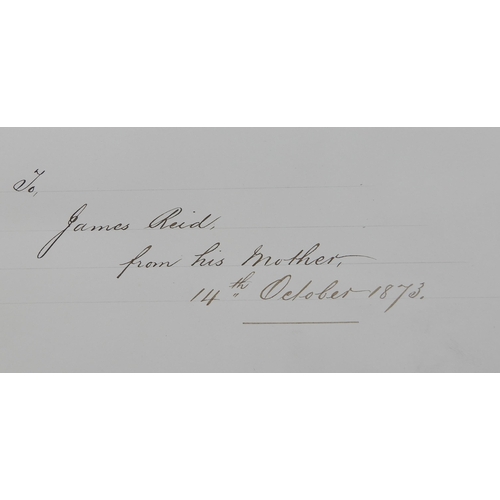 To,
James Reid,
from his Mother,
14th October 1873.